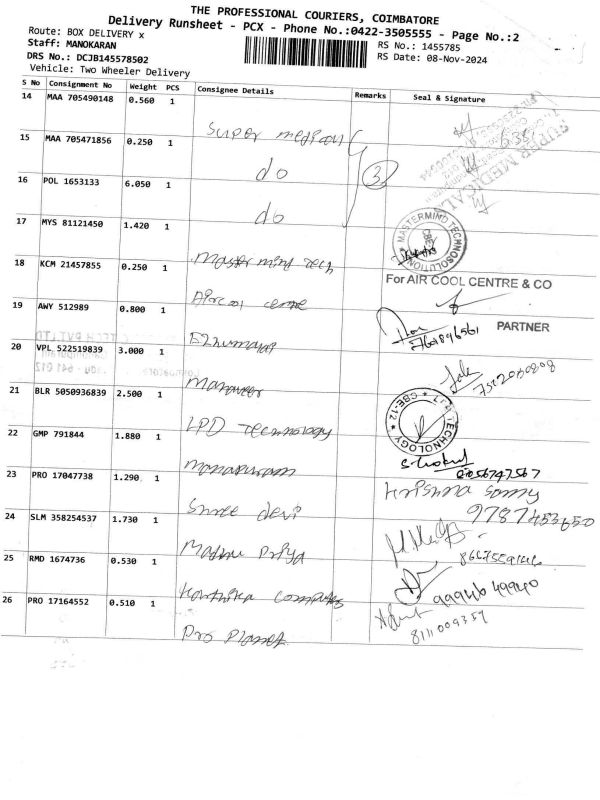 THE PROFESSIONAL COURIERS, COIMBATORE
Delivery Runsheet - PCX - Phone No.:0422-3505555 - Page No.:2
Route: BOX DELIVERY x
RS No.: 1455785
Staff: MANOKARAN
RS Date: 08-Nov-2024
DRS No.: DCJB145578502
Vehicle: Two Wheeler Delivery
S No Consignment No Weight PCS Consignee Details Remarks Seal & Signature
14 MAA 705490148 0.560 1
Super medical
15 MAA 705471856 0.250 1
do
3
16 POL 1653133 6.050 1
do
17 MYS 81121450 1.420 1
MASTERMIND TECHNOSOLUTION
Master mind tech
18 KCM 21457855 0.250 1
For AIR COOL CENTRE & CO
Aircool centre
19 AWY 512989 0.800 1
PARTNER
Ezhumalai
20 VPL 522519839 3.000 1
7522040808
21 BLR 5050936839 2.500 1
LPD Technology
TECHNOLOGY CBE-12
22 GMP 791844 1.880 1
manapuram
23 PRO 17047738 1.290 1
Krishna Samy
9787453650
Shree devi
24 SLM 358254537 1.730 1
Madhu Priya
25 RMD 1674736 0.530 1
Karthika computes
99946 49940
26 PRO 17164552 0.510 1
8111009359
Pro Planet